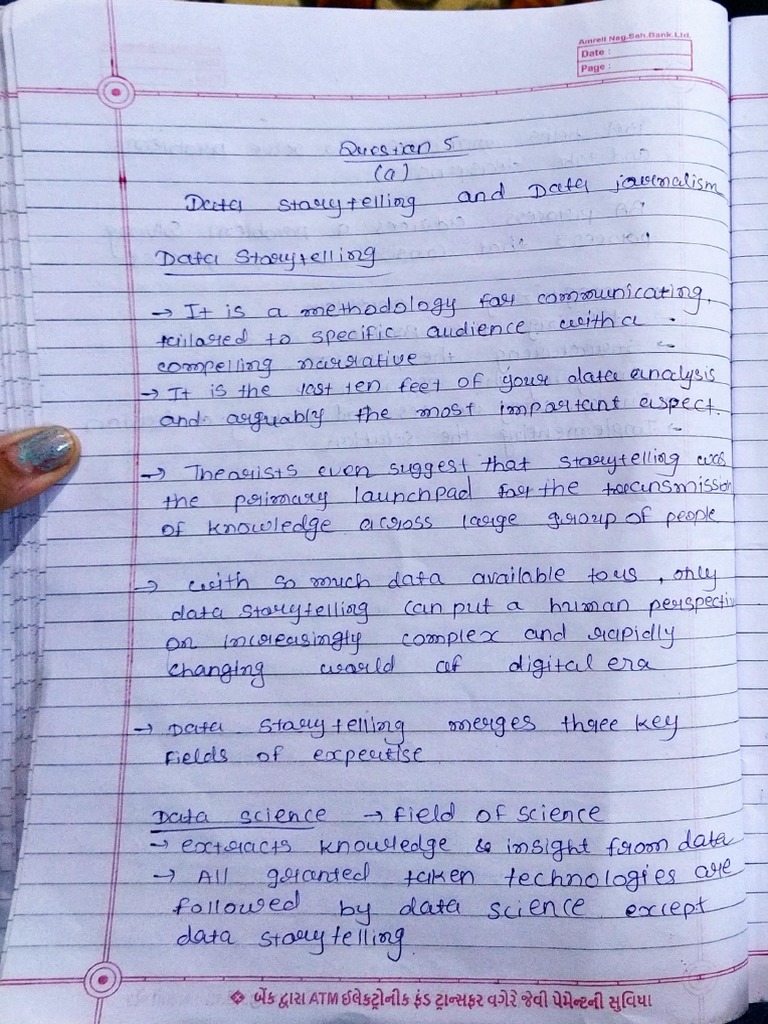 Amreli Nag.Sah.Bank Ltd.
Date :
Page :
Question 5
(a)
Data storytelling and Data journalism
Data Storytelling
→ It is a methodology for communicating,
tailared to specific audience with a
compelling narrative
→ It is the last ten feet of your data analysis
and arguably the most important aspect.
→ Theorists even suggest that storytelling was
the primary launchpad for the transmission
of knowledge across large group of people
→ with so much data available to us, only
data storytelling can put a human perspectiv
on increasingly complex and rapidly
changing world of digital era
→ Data storytelling merges three key
fields of expertise
Data science → field of science
→ extracts knowledge & insight from data
→ All granted taken technologies are
followed by data science except
data storytelling
❖ બેંક દ્વારા ATM ઈલેકટ્રોનીક ફંડ ટ્રાન્સફર વગેરે જેવી પેમેન્ટની સુવિધા